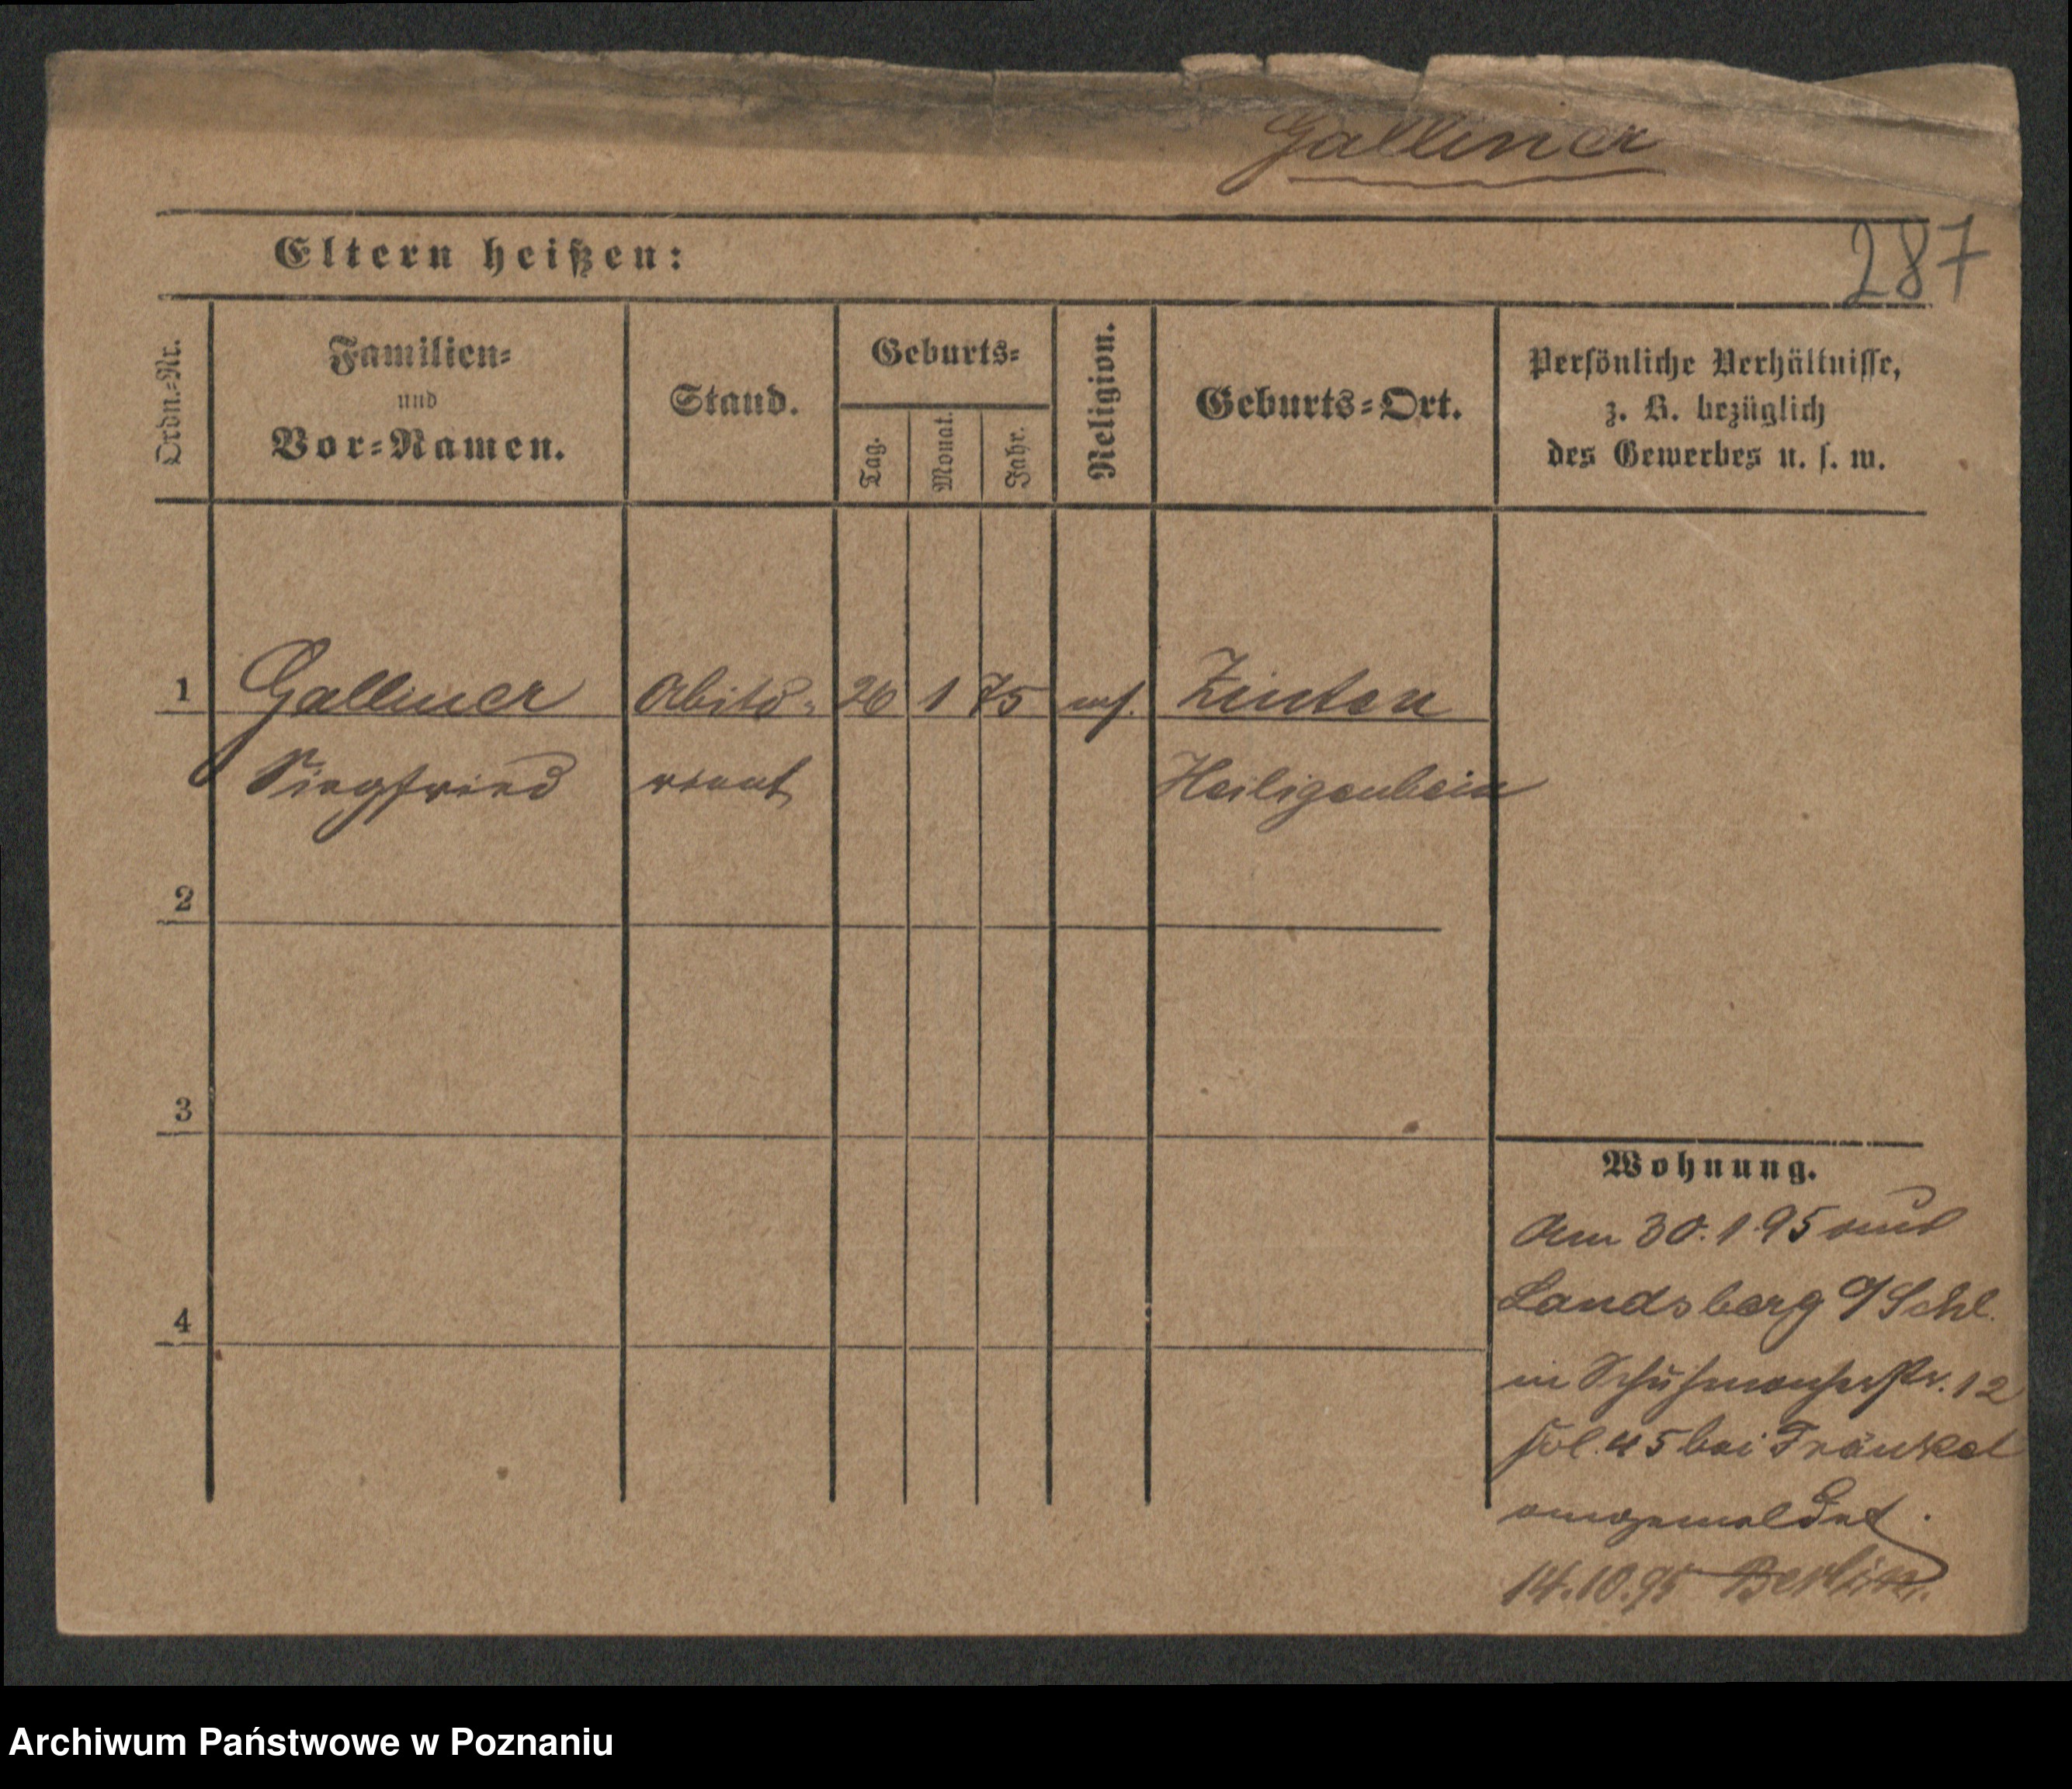 Galliner
287
Eltern heißen:
Ordn.-Nr.
Familien-
und
Vor-Namen.
Stand.
Geburts-
Tag.
Monat.
Jahr.
Religion.
Geburts-Ort.
Persönliche Verhältnisse,
z. B. bezüglich
des Gewerbes u. s. w.
1 Galliner Abitu- 26 1 75 mos. Zinten
Siegfried rient Heiligenbein
2
3
4
Wohnung.
Am 30.1.95 aus
Landsberg O/Schl.
in Schuhmacherstr. 12
bei Fränkel
angemeldet.
14.10.95 Berlin.
Archiwum Państwowe w Poznaniu